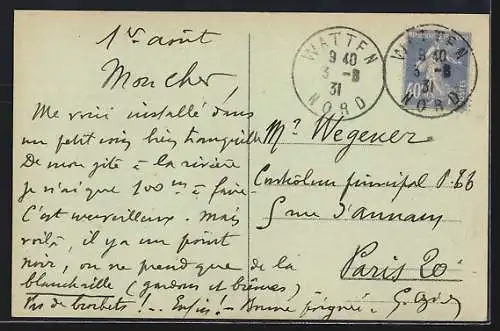 1er août
Mon cher,
Me voici installé dans
un petit coin bien tranquille
De mon gîte à la rivière
je n'ai que 100 m à faire
C'est merveilleux. Mais
voilà, il y a un point
noir, on ne prend que de la
blanchaille (gardons et brèmes)
Pas de brochets! .. Enfin! - Bonne poignée.
WATTEN
9 40
3 - 8
31
NORD
WATTEN
9 40
3 - 8
31
NORD
40
Mr Wegener
Contrôleur principal P.TT
5 rue d'Annam
Paris 20